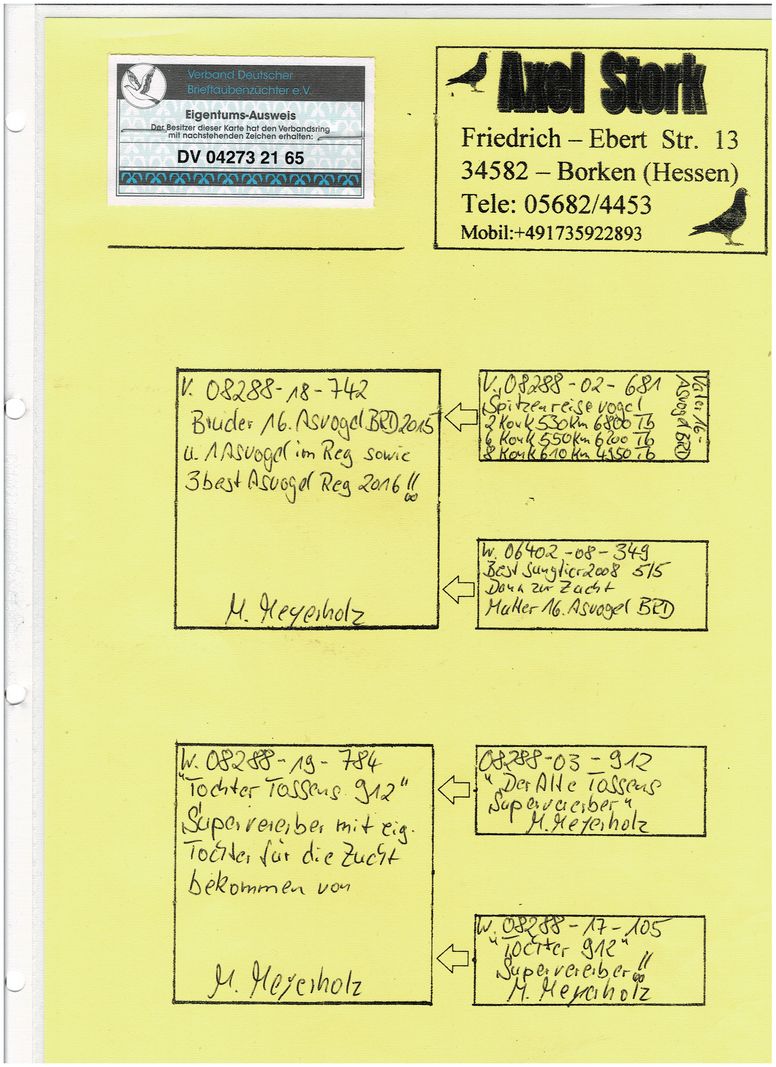 Verband Deutscher
Brieftaubenzüchter e.V.
Eigentums-Ausweis
Der Besitzer dieser Karte hat den Verbandsring
mit nachstehenden Zeichen erhalten:
DV 04273 21 65
Axel Stork
Friedrich – Ebert Str. 13
34582 – Borken (Hessen)
Tele: 05682/4453
Mobil:+491735922893
V. 08288-18-742
Bruder 16. Asvogel BRD 2015
u. 1 Asvogel im Reg sowie
3 best Asvogel Reg 2016 !!
M. Meyerholz
V. 08288-02-681
Spitzenreisevogel
2 Konk 530km 6800 Tb
6 Konk 550km 6200 Tb
8 Konk 610km 4950 Tb
Vater 16-
Asvogel BRD
W. 06402-08-349
Best Jungtier 2008 5/5
Dann zur Zucht
Mutter 16. Asvogel BRD
W. 08288-19-784
"Tochter Tossens 912"
Supervererber mit eig.
Tochter für die Zucht
bekommen von
M. Meyerholz
08288-03-912
"Der Alte Tossens
Supervererber"
M. Meyerholz
W. 08288-17-105
"Tochter 912"
Supervererber !!
M. Meyerholz